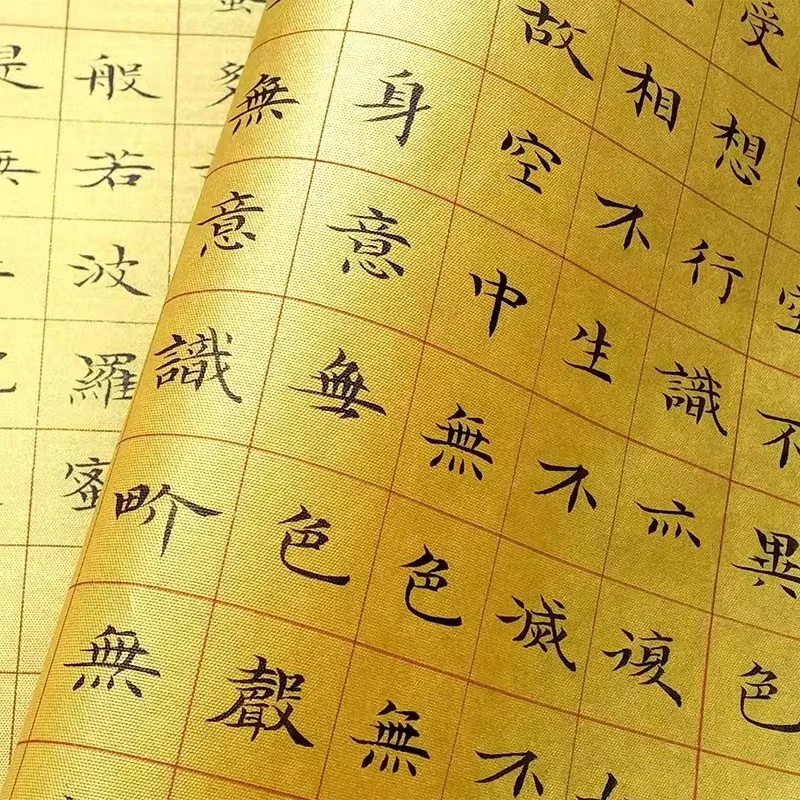 不異色
受想行識亦復
相不生不滅不
故空中無色無
身意無色聲
無意識畍無
多
般若波羅蜜
是無